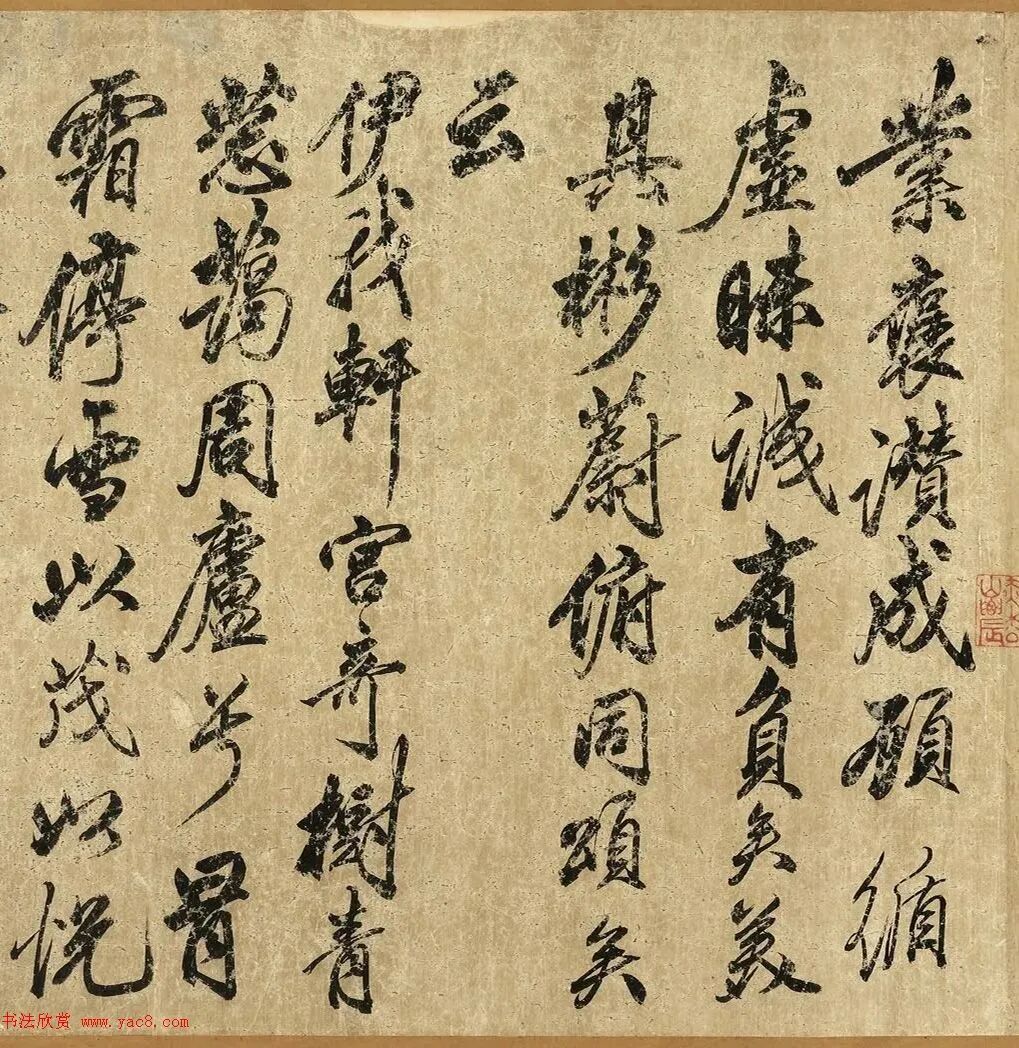 業襃讃成顧循
虛昧誠有負矣美
其彬蔚俯同頌矣
云
伊我軒宮奇樹青
蔥藹周廬兮冒
霜停雪以茂以悅
书法欣赏 www.yac8.com